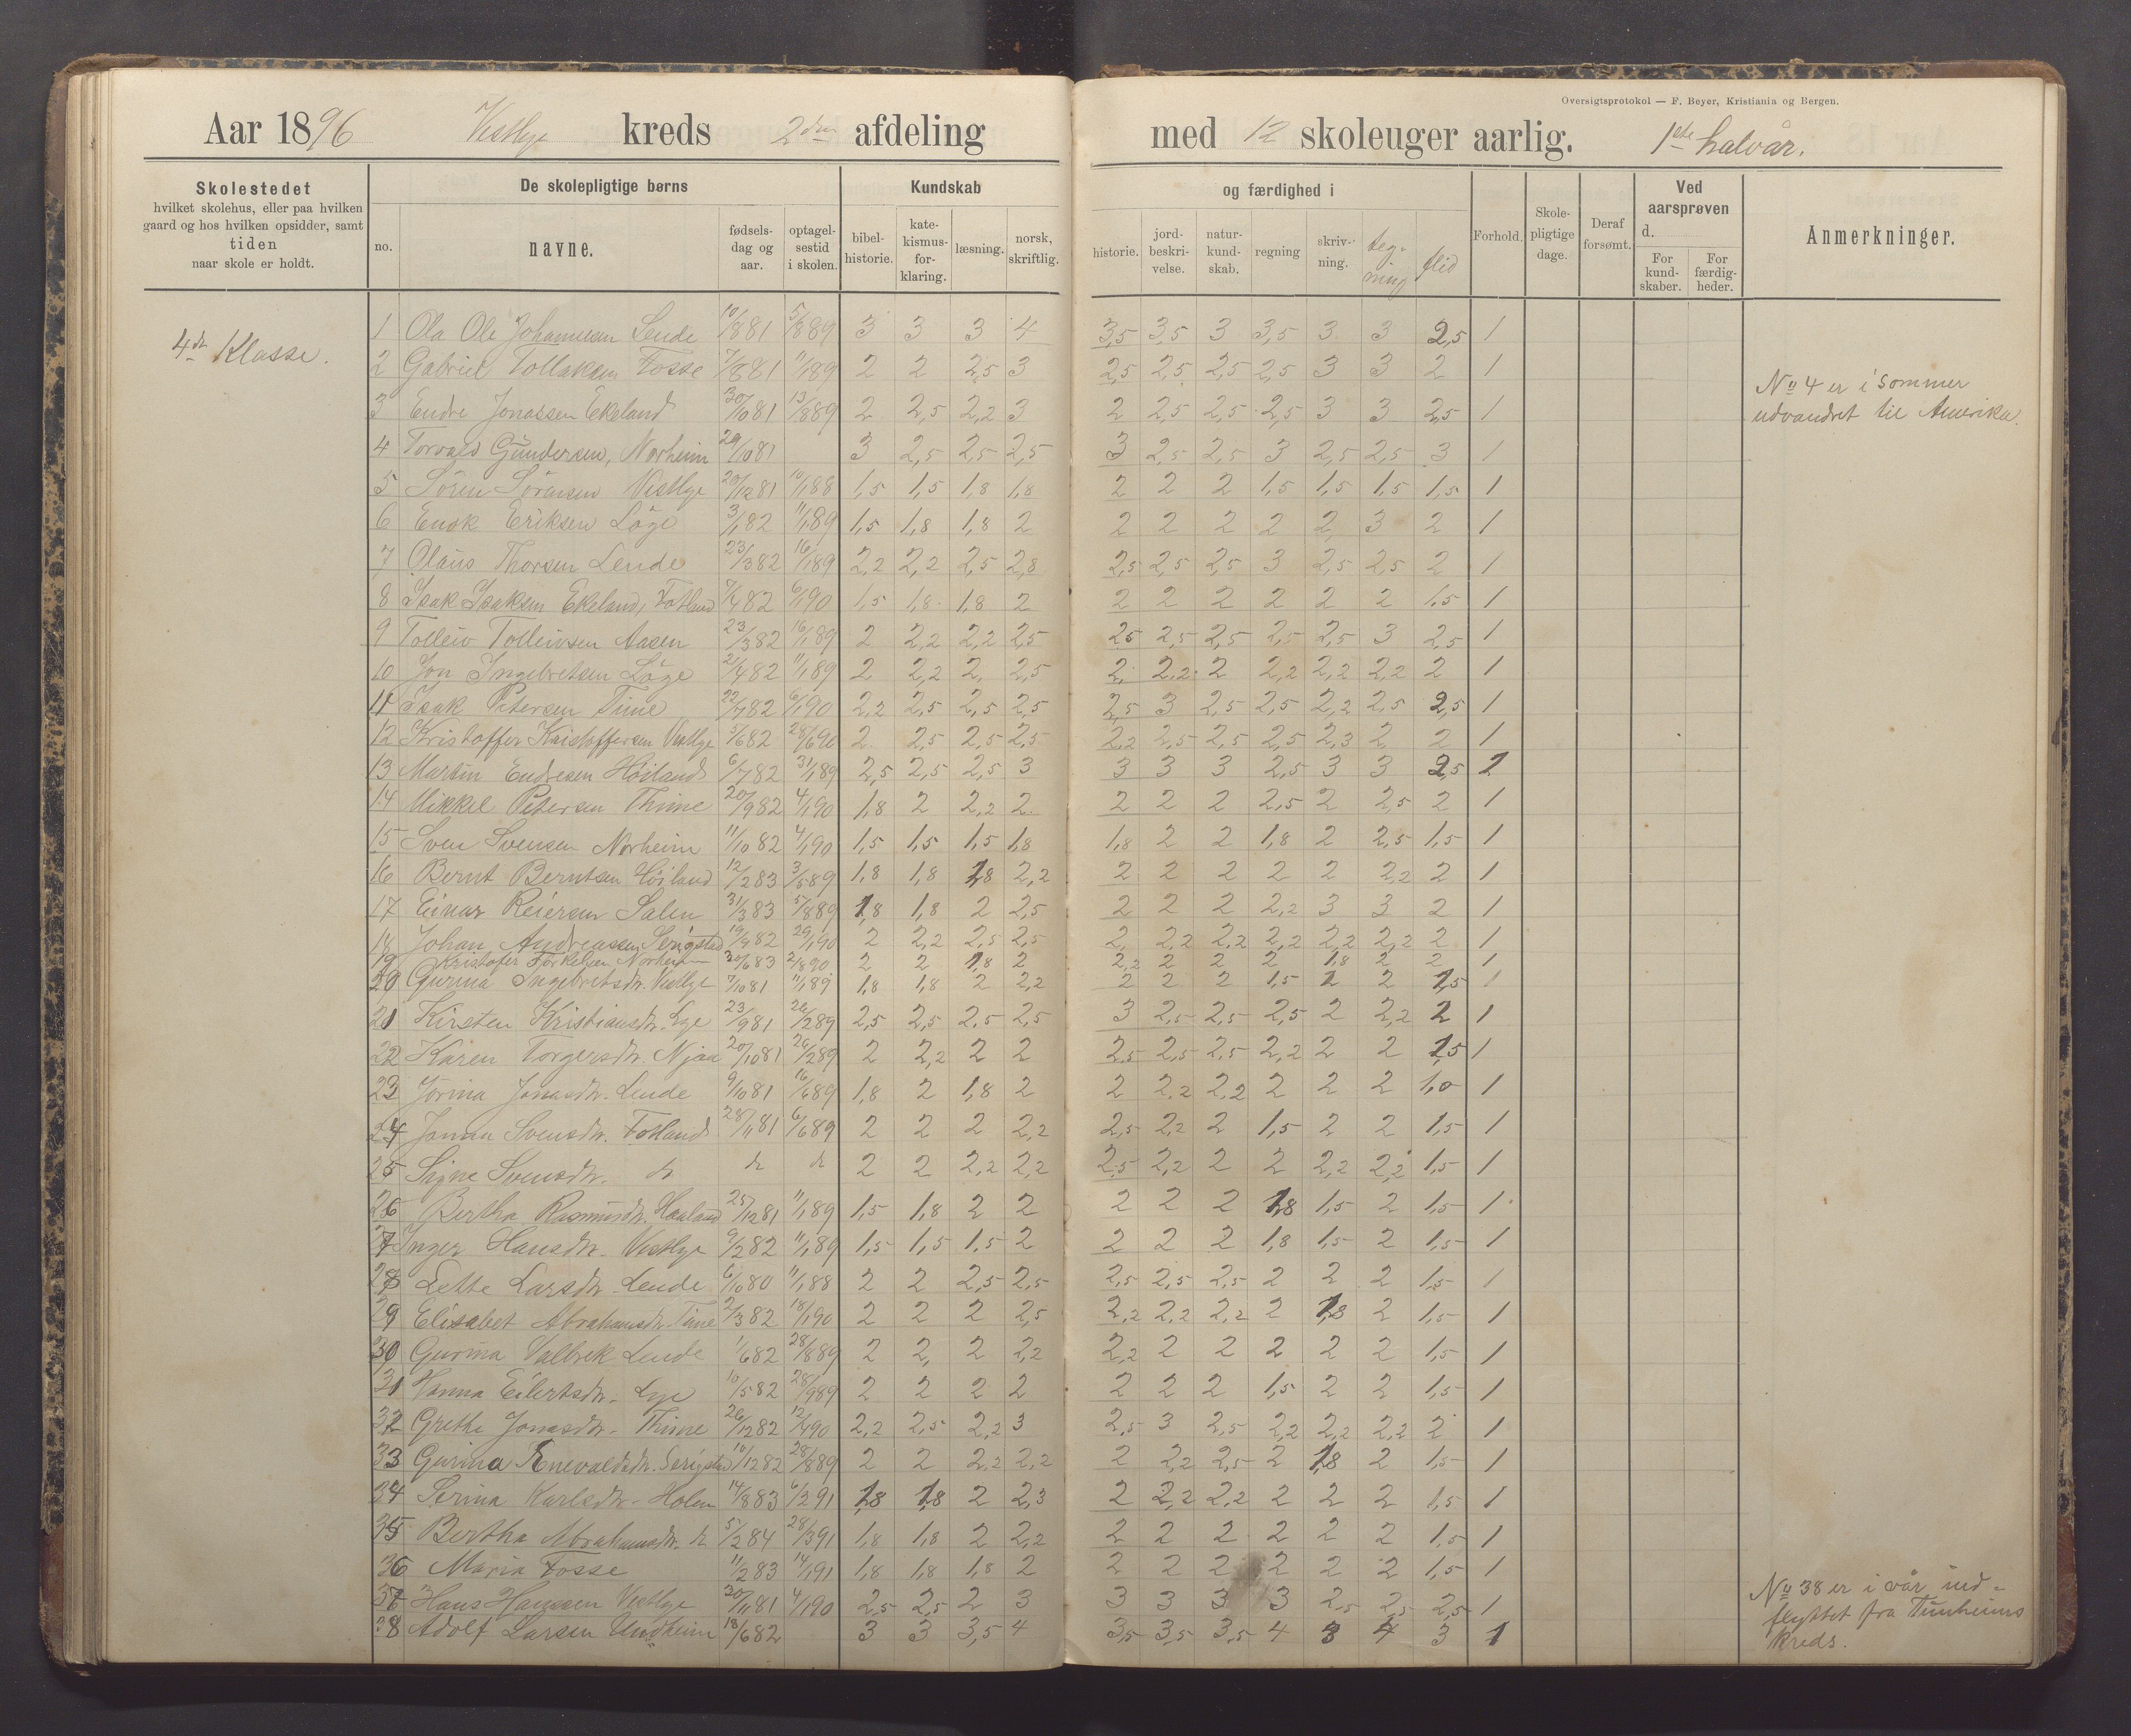 Oversigtsprotokol — F. Beyer, Kristiania og Bergen.
Aar 1896 Vestlye kreds 2den afdeling med 12 skoleuger aarlig. 1ste halvår.
Skolestedet
hvilket skolehus, eller paa hvilken
gaard og hos hvilken opsidder, samt
tiden
naar skole er holdt.
De skolepligtige børns
no.
navne.
fødsels-
dag og
aar.
optagel-
sestid
i skolen.
Kundskab
bibel-
historie.
kate-
kismus-
for-
klaring.
læsning.
norsk,
skriftlig.
og færdighed i
historie.
jord-
beskri-
velse.
natur-
kund-
skab.
regning
skriv-
ning.
teg-
ning
flid
Forhold.
Skole-
pligtige
dage.
Deraf
forsømt.
Ved
aarsprøven
d.
For
kund-
skaber.
For
færdig-
heder.
Anmerkninger.
4de Klasse.
1 Ola Ole Johannesen Lende 10/8 81 5/8 89 3 3 3 4 3,5 3,5 3 3,5 3 3 2,5 1
2 Gabriel Tollaksen Fosse 7/8 81 11/1 89 2 2 2,5 3 2,5 2,5 2,5 2,5 3 3 2 1
3 Endre Jonassen Ekeland 20/10 81 13/8 89 2 2,5 2,2 3 2 2,5 2,5 2,5 3 3 2,5 1
4 Torvald Gundersen, Norheim 29/10 81 3 2,5 2,5 2,5 3 2,5 2,5 3 2,5 2,5 3 1
5 Sören Sörensen Vestlye 20/12 81 10/1 88 1,5 1,5 1,8 1,8 2 2 2 1,5 1,5 1,5 1,5 1
6 Enok Eriksen Löge 3/1 82 11/1 89 1,5 1,8 1,8 2 2 2 2 2 2 3 2 1
7 Olaus Thorsen Lende 23/3 82 16/1 89 2,2 2,2 2,5 2,8 2,5 2,5 2,5 3 2,5 2,5 2 1
8 Isak Isaksen Ekeland, Fotland 7/4 82 6/1 90 1,5 1,8 1,8 2 2 2 2 2 2 2 1,5 1
9 Tolleiv Tolleivsen Aasen 23/3 82 16/1 89 2 2,2 2,2 2,5 2,5 2,5 2,5 2,5 2,5 3 2,5 1
10 Jon Ingebretsen Löge 21/4 82 11/1 89 2 2,2 2 2,5 2 2,2 2 2,2 2,2 2,2 2 1
11 Isak Petersen Time 22/4 82 6/1 90 2,2 2,5 2,5 2,5 2,5 3 2,5 2,5 2,2 2,5 2,5 1
12 Kristoffer Kristoffersen Vestlye 5/6 82 28/6 90 2 2,5 2,5 2,5 2,2 2,5 2,5 2,5 2,3 2 2 1
13 Martin Endresen Höiland 6/7 82 31/1 89 2,5 2,5 2,5 3 3 3 3 2,5 3 3 2,5 2
14 Mikkel Petersen Thime 20/9 82 4/1 90 1,8 2 2,2 2 2 2 2 2,5 2 2,5 2 1
15 Sven Svensen Norheim 11/10 82 4/1 90 1,5 1,5 1,5 1,8 1,8 2 2 1,8 2 2,5 1,5 1
16 Bernt Berntsen Höiland 12/2 83 3/5 89 1,8 1,8 1,8 2,2 2 2 2 2 2 2,2 2 1
17 Einar Reiersen Salen 31/3 83 5/8 89 1,8 1,8 2 2,5 2 2 2 2,2 3 3 2 1
18 Johan Andreassen Serigstad 19/4 82 29/1 90 2 2,2 2,5 2,5 2 2,2 2,2 2,2 2,2 2,2 2 1
19 Kristofer Torkelsen Norheim 30/6 83 2/8 90 2 2 1,8 2 2,2 2 2 2 1,8 2 2 1
20 Gurina Ingebretsdr. Vestlye 7/10 81 11/1 89 1,8 1,8 2 2,2 2 2 2 1,5 2 2 1,5 1
21 Kirsten Kristiansdr. Lye 23/9 81 26/2 89 2,5 2,5 2,5 2,5 3 2,5 2,5 2,5 2 2,2 2 1
22 Karen Torgersdr. Njaa 20/10 81 26/2 89 2 2,2 2 2 2,5 2,5 2,5 2,2 2 2 1,5 1
23 Jorina Jonasdr. Lende 9/10 81 16/6 89 1,8 2 1,8 2 2 2,2 2,2 2 2 2 1,0 1
24 Janna Svensdr. Fotland 28/11 81 6/6 89 2 2 2 2,2 2,5 2,2 2 1,5 2 2 1,5 1
25 Signe Svensdr. dr dr dr 2 2 2,2 2,2 2,5 2,2 2 2 2,2 2,2 1,5 1
26 Bertha Rasmusdr. Haaland 25/12 81 11/1 89 1,5 1,8 2 2 2 2 2 1,8 1,5 2 1,5 1
27 Inger Hansdr. Vestlye 9/2 82 11/1 89 1,5 1,5 1,5 2 2 2 2 1,8 1,5 2 1,5 1
28 Lette Larsdr. Lende 6/10 80 11/1 88 2 2 2,5 2,5 2,5 2,5 2,5 2 2 2 1,5 1
29 Elisabet Abrahamsdr. Time 2/3 82 18/1 90 2 2 2 2,5 2,2 2,2 2,2 2 1,8 2 1,5 1
30 Gurina Valbrek Lende 1/6 82 28/8 89 2 2 2 2,2 2,2 2 2 2 2 2 1,5 1
31 Hanna Eilertsdr. Lye 10/5 82 28/9 89 2 2 2 2 2 2 2 1,5 2 2 1,5 1
32 Grethe Jonasdr. Thime 26/12 82 12/4 90 2,2 2,5 2,2 3 2,5 3 2,5 2,2 2,2 2,2 2 1
33 Gurina Enevaldsdr. Serigstad 10/12 82 28/8 89 2 2 2,2 2,2 2 2,2 2,5 2 1,8 2 1,5 1
34 Serina Karlsdr. Holen 14/8 83 6/2 91 1,8 1,8 2 2,3 2 2,2 2,2 2 2 2 1,5 1
35 Bertha Abrahamsdr. dr 5/2 84 28/3 91 1,8 1,8 2 2,2 2 2 2 2 2 2 1,5 1
36 Maria Fosse 11/2 83 14/1 91 1,8 1,8 1,8 2 2 2 2 2 2 2 1,5 1
37 Hans Hanssen Vestlye 20/11 81 4/1 90 2,5 2,5 2 3 3 3 3 3 2,5 2,5 2,5 1
38 Adolf Larsen Undheim 18/6 82 3 3 3,5 4 3,5 3,5 3,5 4 3 4 3 1
No 4 er i sommer
udvandret til Amerika.
No 38 er i vår ind-
flyttet fra Tunheims
kreds.